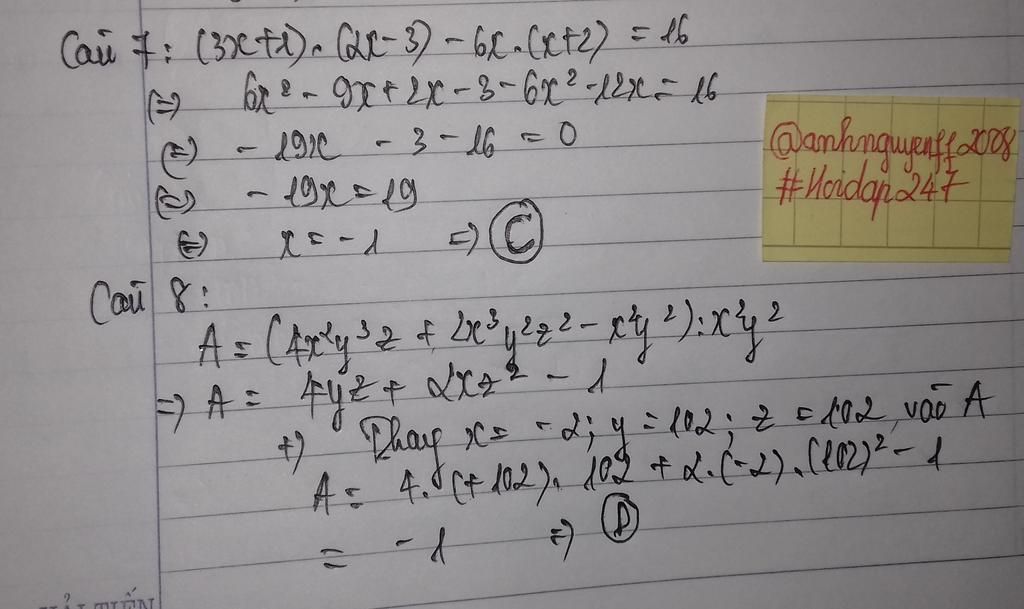 Câu 7: (3x+1).(2x-3) - 6x.(x+2) = 16
(=) 6x² - 9x + 2x - 3 - 6x² - 12x = 16
(=) - 19x - 3 - 16 = 0
(=) - 19x = 19
(=) x = -1 => C
@anhnguyenff2008
#Hoidap247
Câu 8:
A = (4x²y³z + 2x³y²z² - x²y²) : x²y²
=> A = 4yz + 2xz² - 1
+) Thay x = -2; y = 102; z = 102 vào A
A = 4.(+102).102 + 2.(-2).(102)² - 1
= -1 => D